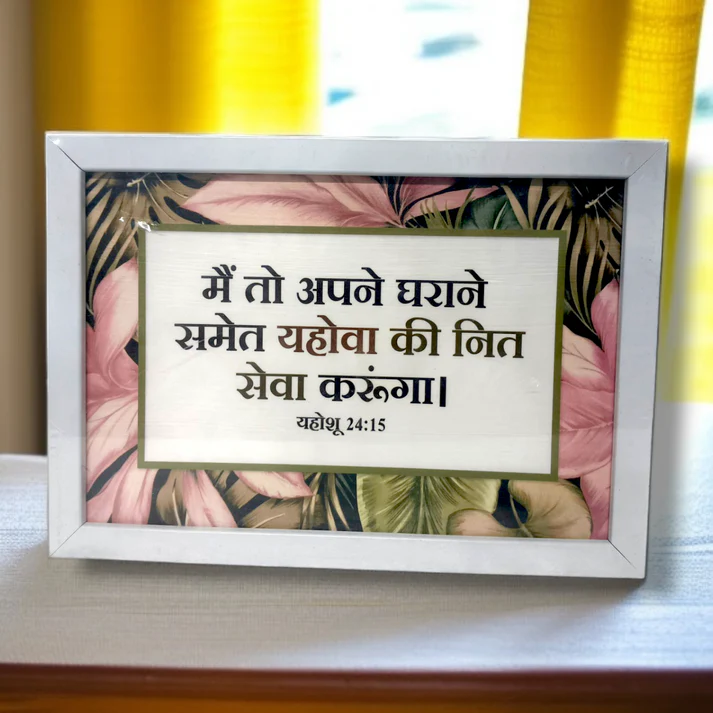 मैं तो अपने घराने
समेत यहोवा की नित
सेवा करूंगा।
यहोशू 24:15